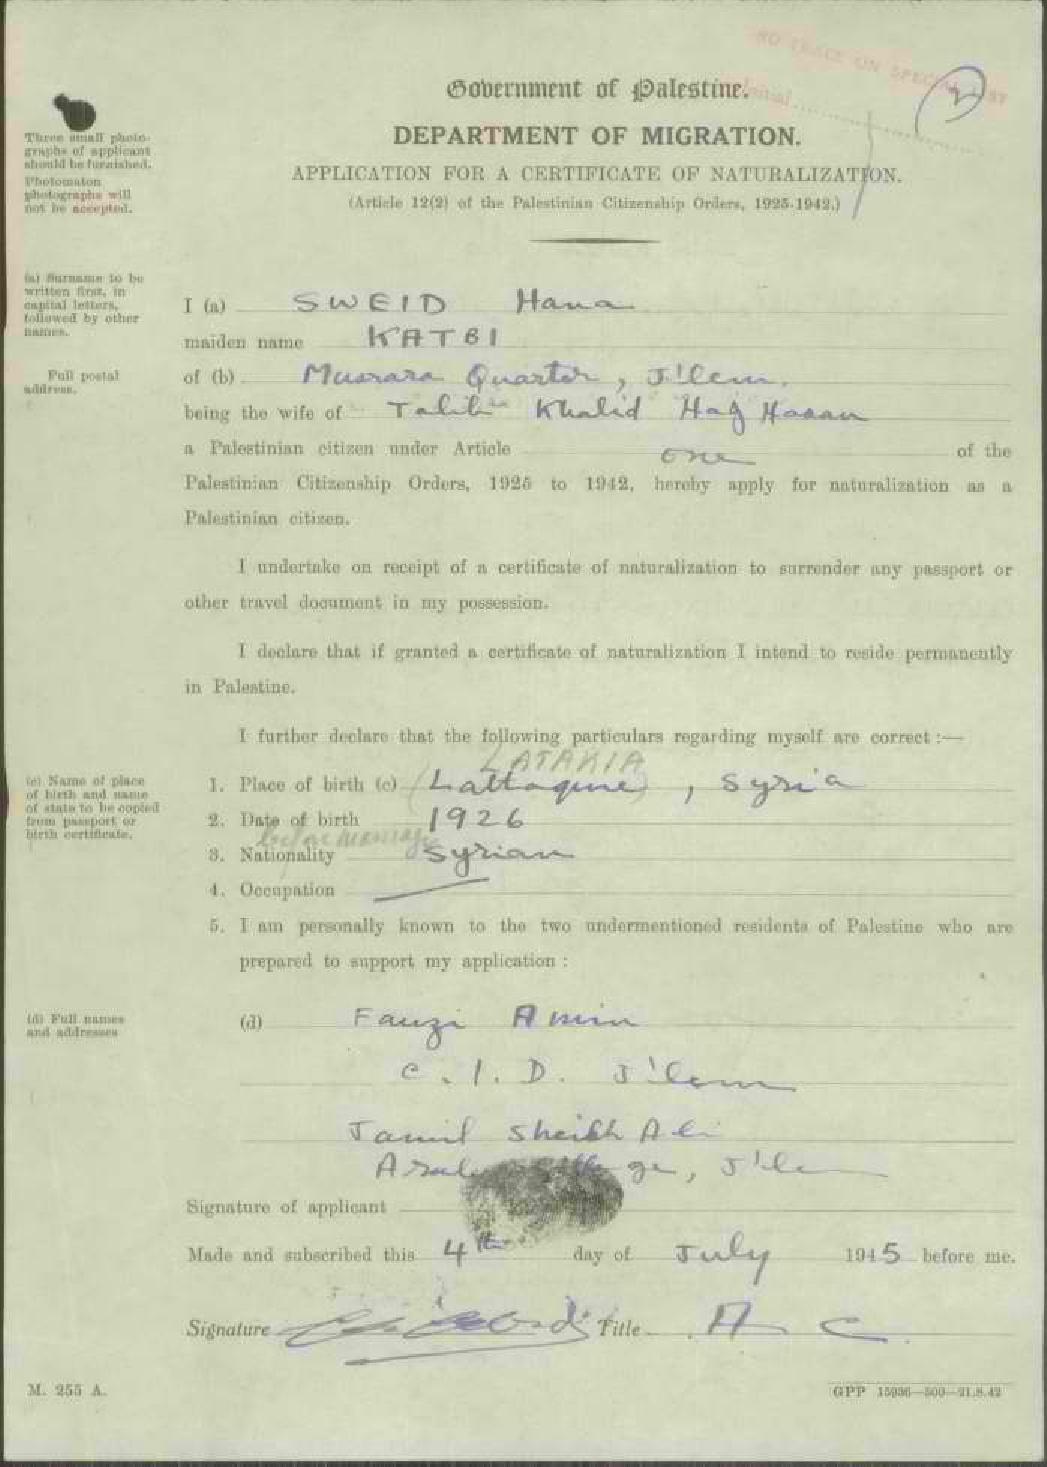 NO TRACE ON SPECIAL LIST
2
Government of Palestine.
DEPARTMENT OF MIGRATION.
APPLICATION FOR A CERTIFICATE OF NATURALIZATION.
(Article 12(2) of the Palestinian Citizenship Orders, 1925-1942.)
Three small photo-
graphs of applicant
should be furnished.
Photomaton
photographs will
not be accepted.
(a) Surname to be
written first, in
capital letters,
followed by other
names.
I (a) SWEID Hana
maiden name KATBI
Full postal
address.
of (b) Musrara Quarter, J'lem.
being the wife of Talib Khalid Haj Hasan
a Palestinian citizen under Article one of the
Palestinian Citizenship Orders, 1925 to 1942, hereby apply for naturalization as a
Palestinian citizen.
I undertake on receipt of a certificate of naturalization to surrender any passport or
other travel document in my possession.
I declare that if granted a certificate of naturalization I intend to reside permanently
in Palestine.
I further declare that the following particulars regarding myself are correct :—
LATAKIA
(c) Name of place
of birth and name
of state to be copied
from passport or
birth certificate.
1. Place of birth (c) (Lattaquie), Syria
2. Date of birth 1926
before marriage
3. Nationality Syrian
4. Occupation
5. I am personally known to the two undermentioned residents of Palestine who are
prepared to support my application :
(d) Full names
and addresses
(d) Fauzi Amin
C.I.D. J'lem
Jamil Sheikh Ali
J'lem
Signature of applicant
Made and subscribed this 4th day of July 1945 before me.
Signature Title A C
M. 255 A.
GPP 15936—500—21.8.42